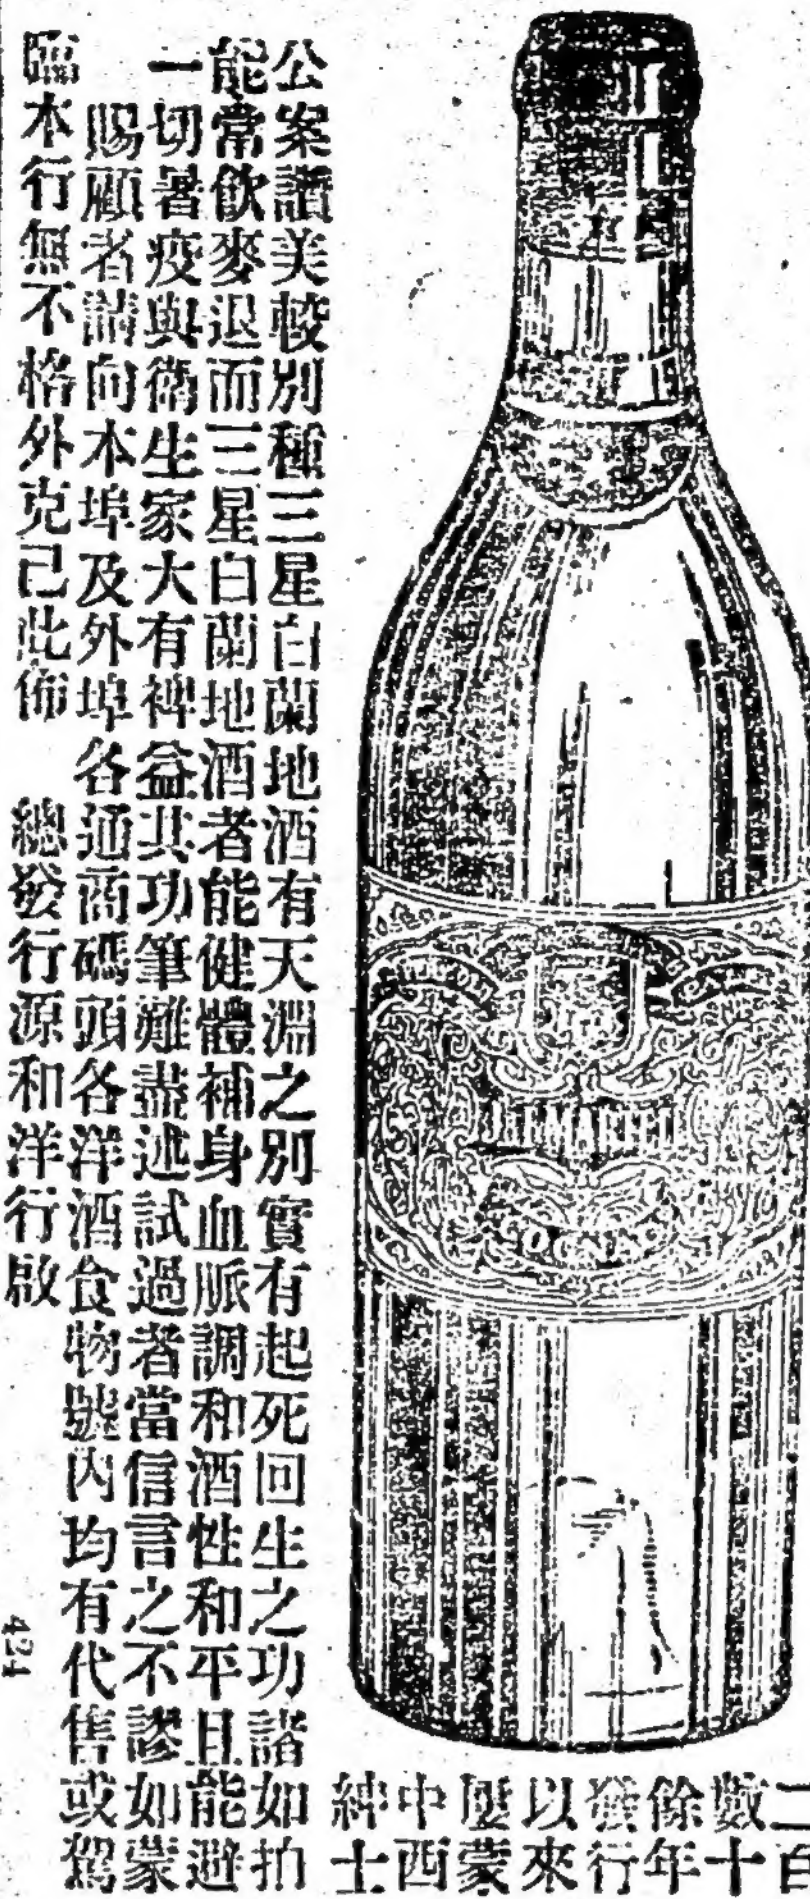 二百
數十
餘年
發行
以來
歷蒙
中西
紳士
公案讚美較別種三星白蘭地酒有天淵之別實有起死回生之功諸如拍
能常飲麥退而三星白蘭地酒者能健體補身血脈調和酒性和平且能避
一切暑疫與衛生家大有裨益其功筆難盡述試過者當信言之不謬如蒙
賜顧者請向本埠及外埠各通商碼頭各洋酒食物號內均有代售或駕
臨本行無不格外克己此佈 總發行源和洋行啟
424
J&F MARTELL
COGNAC